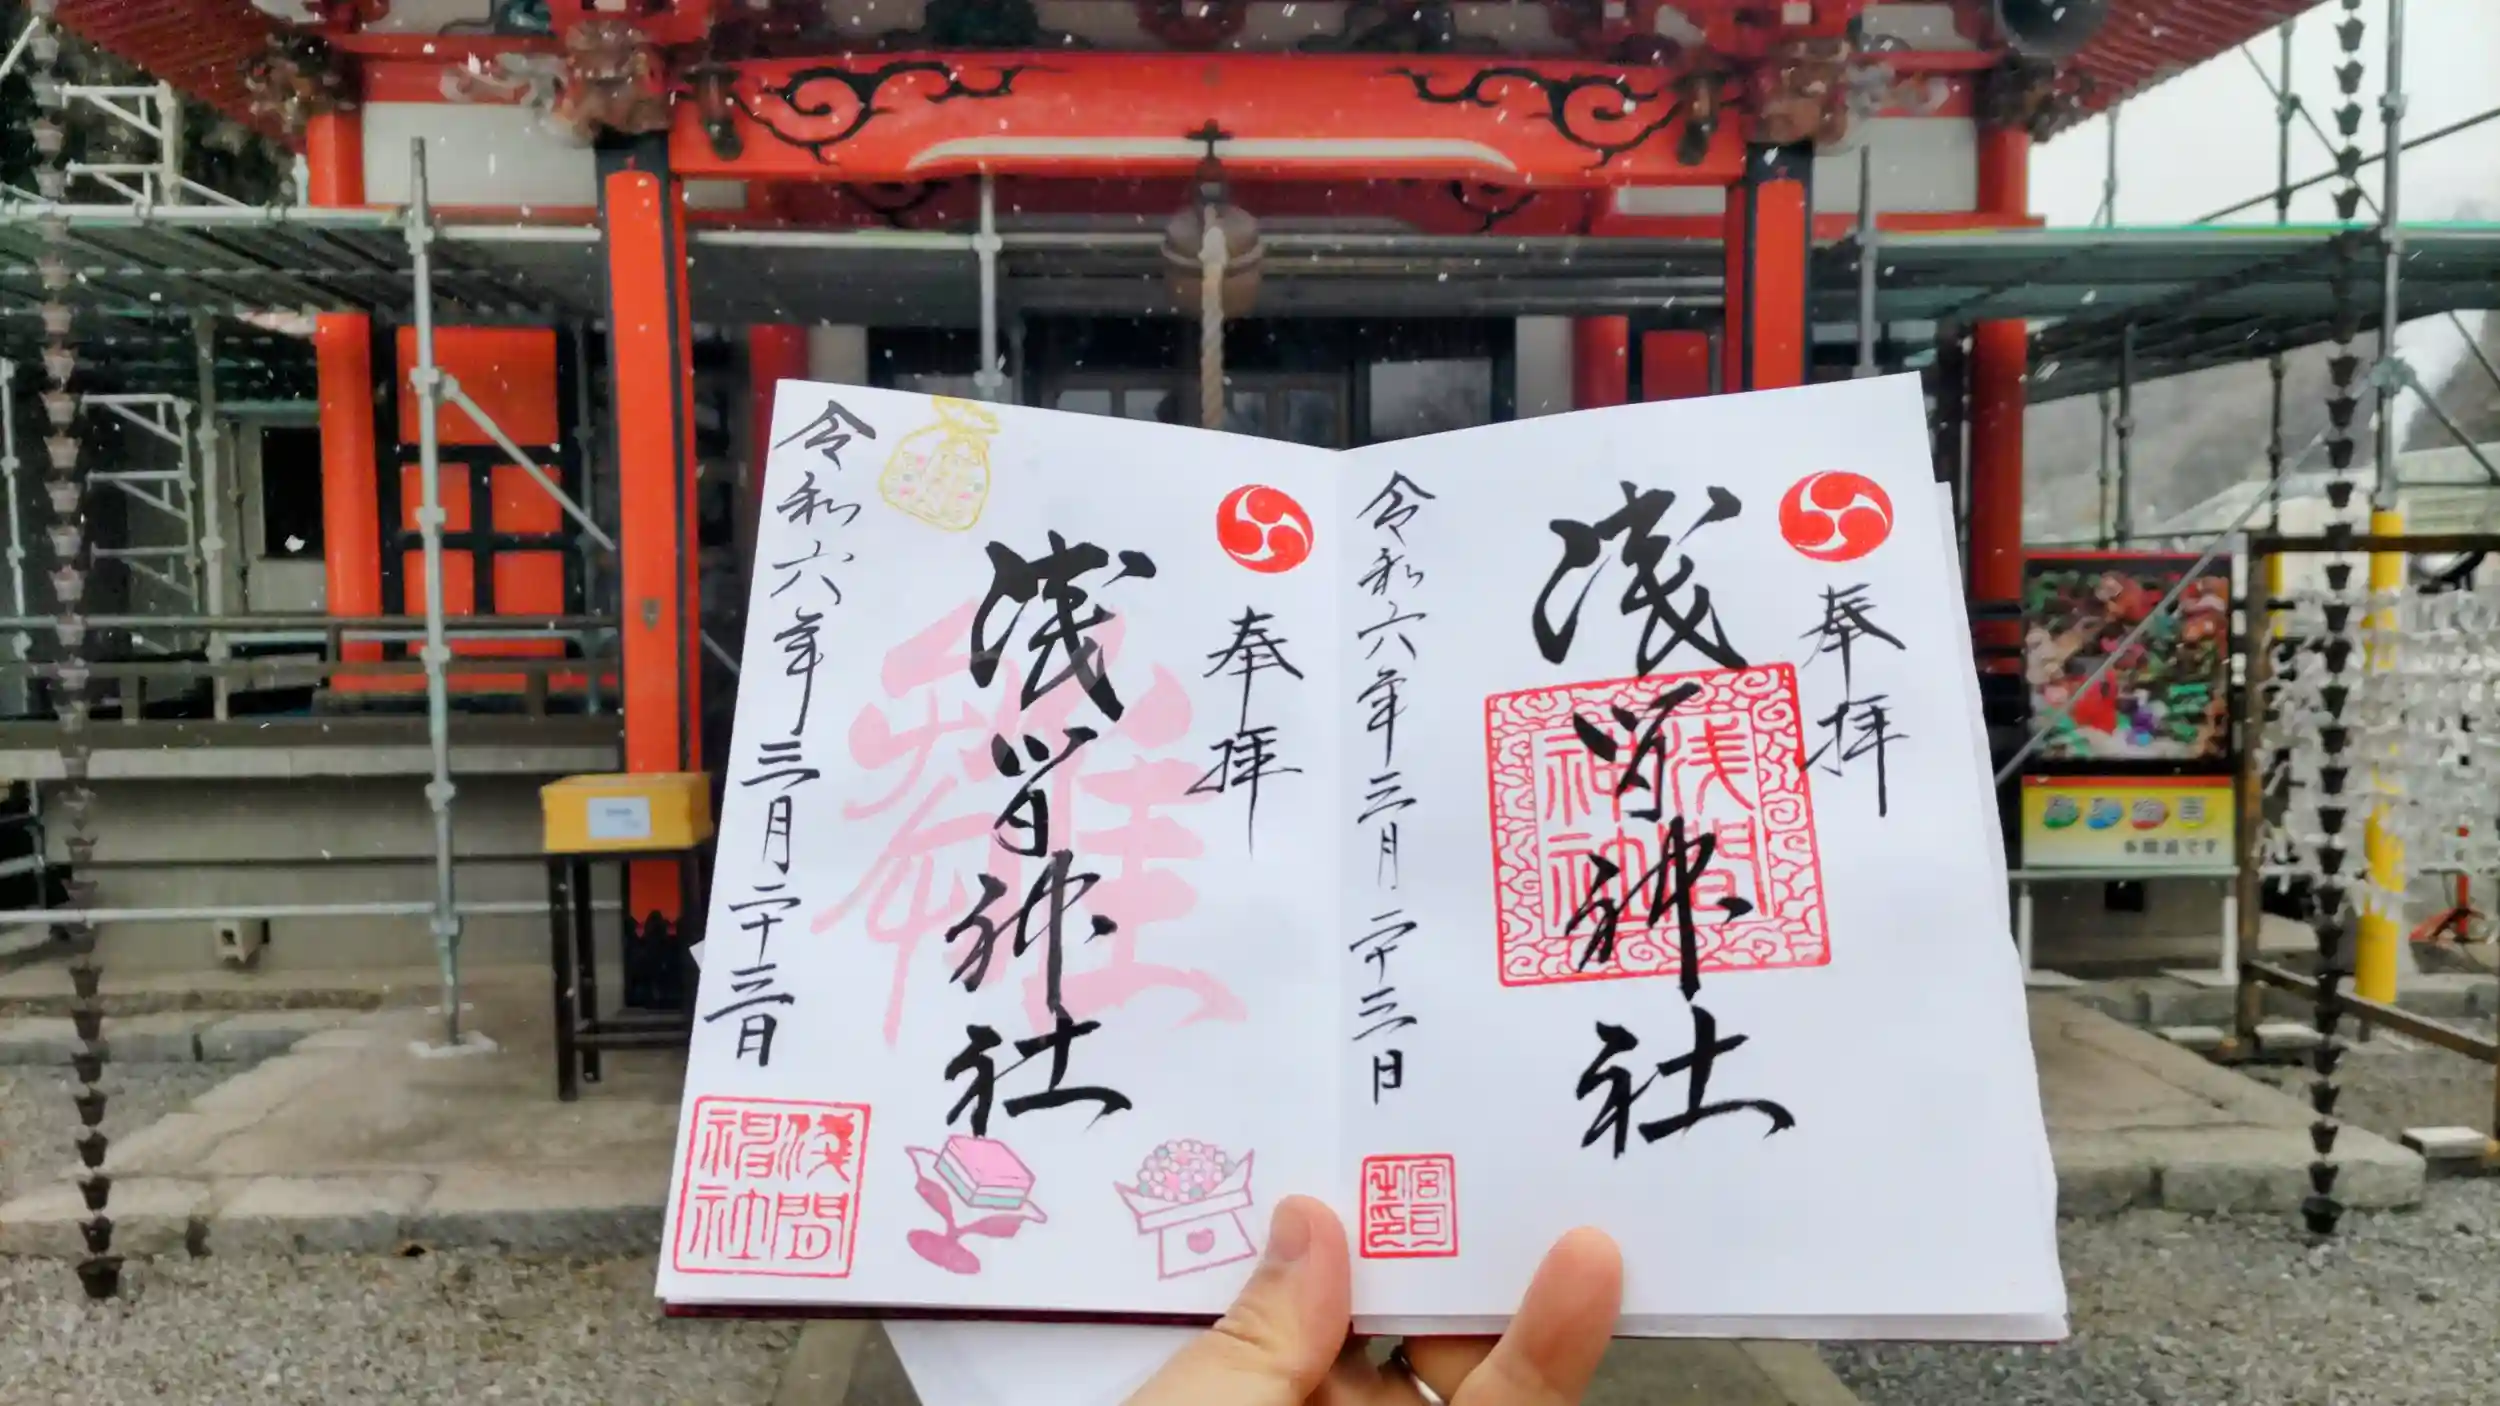 奉拝
浅間神社
浅間神社
令和六年三月二十三日
宮司之印
奉拝
浅間神社
雛
令和六年三月二十三日
浅間神社